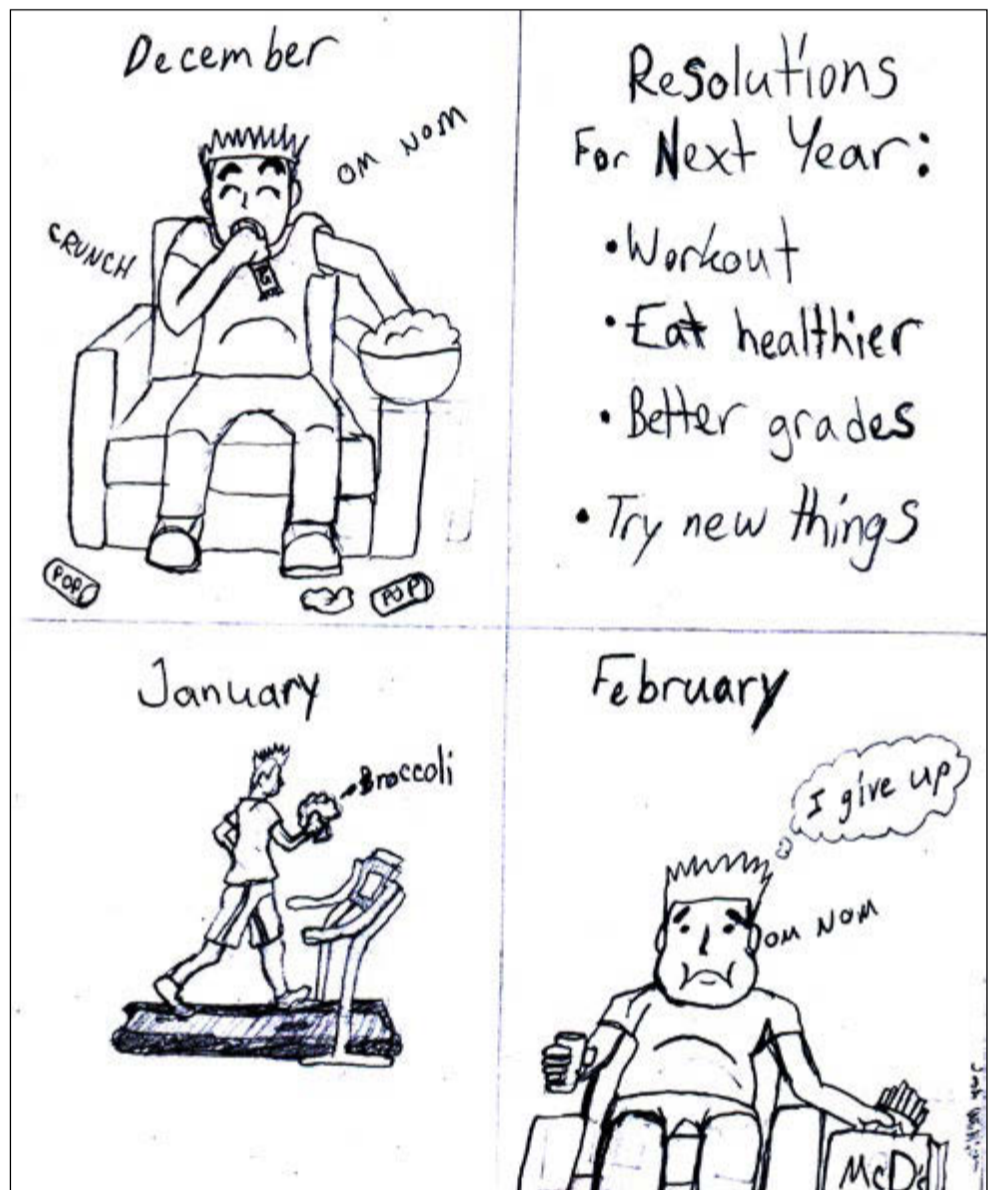 December
OM NOM
CRUNCH
POP
POP
Resolutions
For Next Year:
• Workout
• Eat healthier
• Better grades
• Try new things
January
Broccoli
February
I give up
OM NOM
McD's